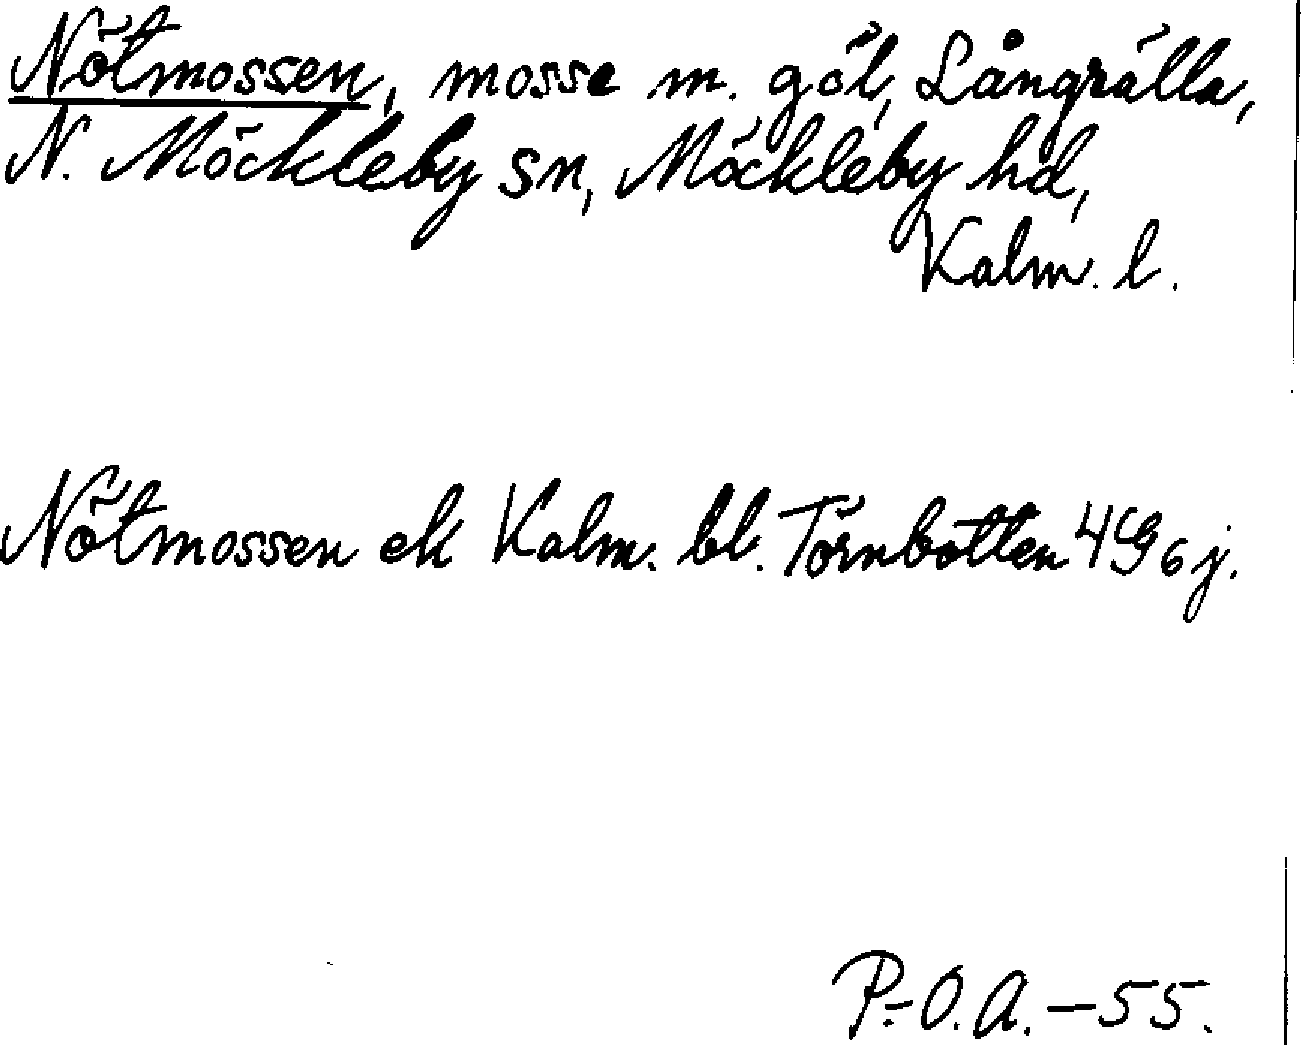 Nötmossen, mosse m. göl, Långrälla,
N. Möckleby sn, Möckleby hd,
Kalm. l.
Nötmossen ek Kalm. bl. Törnbotten 4G6j.
P.-O.A.-55.